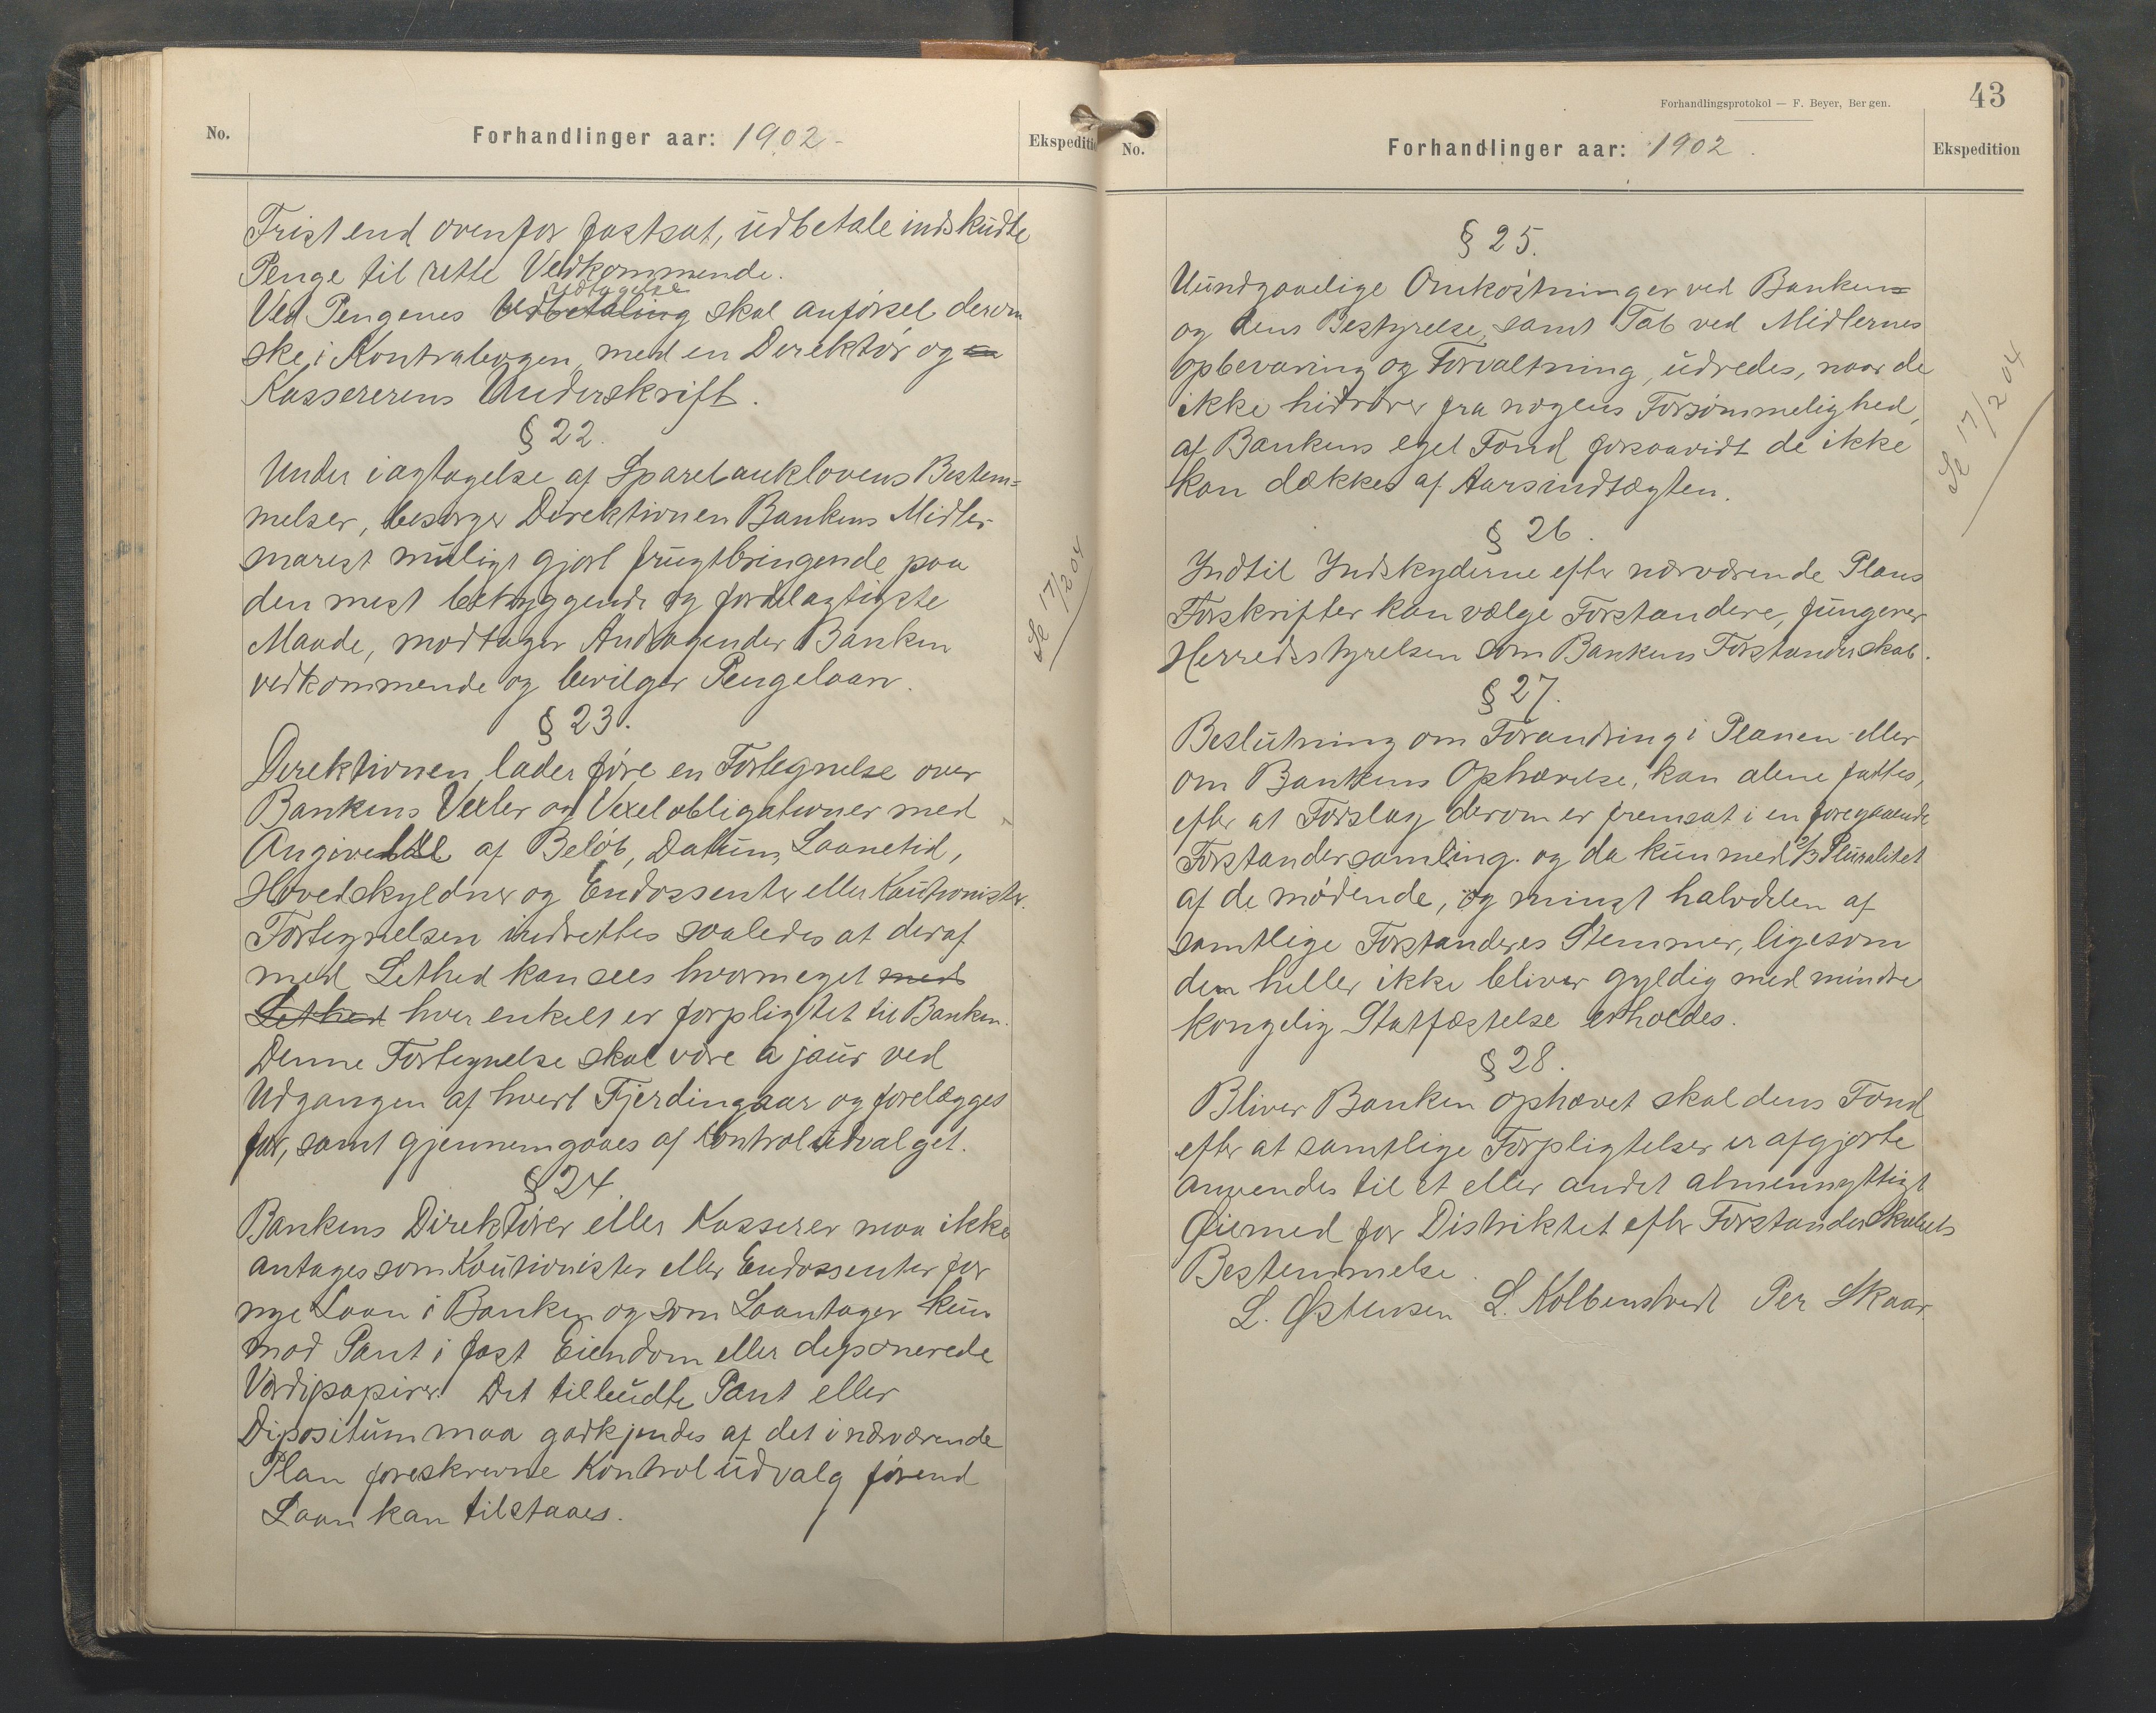 No.
Forhandlinger aar: 1902 -
Ekspediti
Frist end ovenfor fastsat, udbetale indskudte
Penge til rette Vedkommende.
udtagelse
Ved Pengenes Udbetaling skal anførsel derom
ske i Kontrabogen med en Direktør og en
Kassererens Underskrift.
§ 22.
Under iagtagelse af Sparebanklovens Bestem=
melser, besørger Direktionen Bankens Midler
snarest muligt gjort frugtbringende paa
den mest betryggende og fordelagtigste
Maade, modtager Andragender Banken
vedkommende og bevilger Pengelaan.
§ 23.
Direktionen lader føre en Fortegnelse over
Bankens Vexler og Vexelobligationer med
Angivelse af Beløb, Datum, Laanetid,
Hovedskyldner og Endossenter eller Kautionister.
Fortegnelsen indrettes saaledes at deraf
med Lethed kan sees hvormeget med
Lethed hver enkelt er forpligtet til Banken.
Denne Fortegnelse skal være a jour ved
Udgangen af hvert Fjerdingaar og forelægges
for, samt gjennemgaaes af Kontroludvalget.
§ 24.
Bankens Direktører eller Kasserer maa ikke
antages som Kautionister eller Endossenter for
nye Laan i Banken og som Laantager kun
mod Pant i fast Eiendom eller deponerede
Værdipapirer. Det tilbudte Pant eller
Dipositum maa godkjendes af det i nærværende
Plan foreskrevne Kontroludvalg førend
Laan kan tilstaaes.
Se 17/2 04
Forhandlingsprotokol — F. Beyer, Bergen.
43
No.
Forhandlinger aar: 1902.
Ekspedition
§ 25.
Uundgaaelige Omkostninger ved Banken
og dens Bestyrelse, samt Tab ved Midlernes
opbevaring og Forvaltning, udredes, naar de
ikke hidrører fra nogens Forsømmelighed,
af Bankens eget Fond forsaavidt de ikke
kan dækkes af Aarsindtægten.
§ 26.
Indtil Indskyderne efter nærværende Plans
Forskrifter kan vælge Forstandere, fungerer
Herredsstyrelsen som Bankens Forstanderskab.
§ 27.
Beslutning om Forandring i Planen eller
om Bankens Ophævelse, kan alene fattes,
efter at Forslag derom er fremsat i en foregaaende
Forstandersamling. og da kun med 2/3 Pluralitet
af de mødende, og mingst halvdelen af
samtlige Forstanderes Stemmer, ligesom
den heller ikke bliver gyldig med mindre
kongelig Statfæstelse erholdes.
§ 28.
Bliver Banken ophævet skal dens Fond
efter at samtlige Forpligtelser er afgjorte
anvendes til et eller andet almennyttigt
Øiemed for Distriktet efter Forstanderskabets
Bestemmelse.
L. Østensen L. Kolbenstvedt Per Skaar.
Se 17/2 04